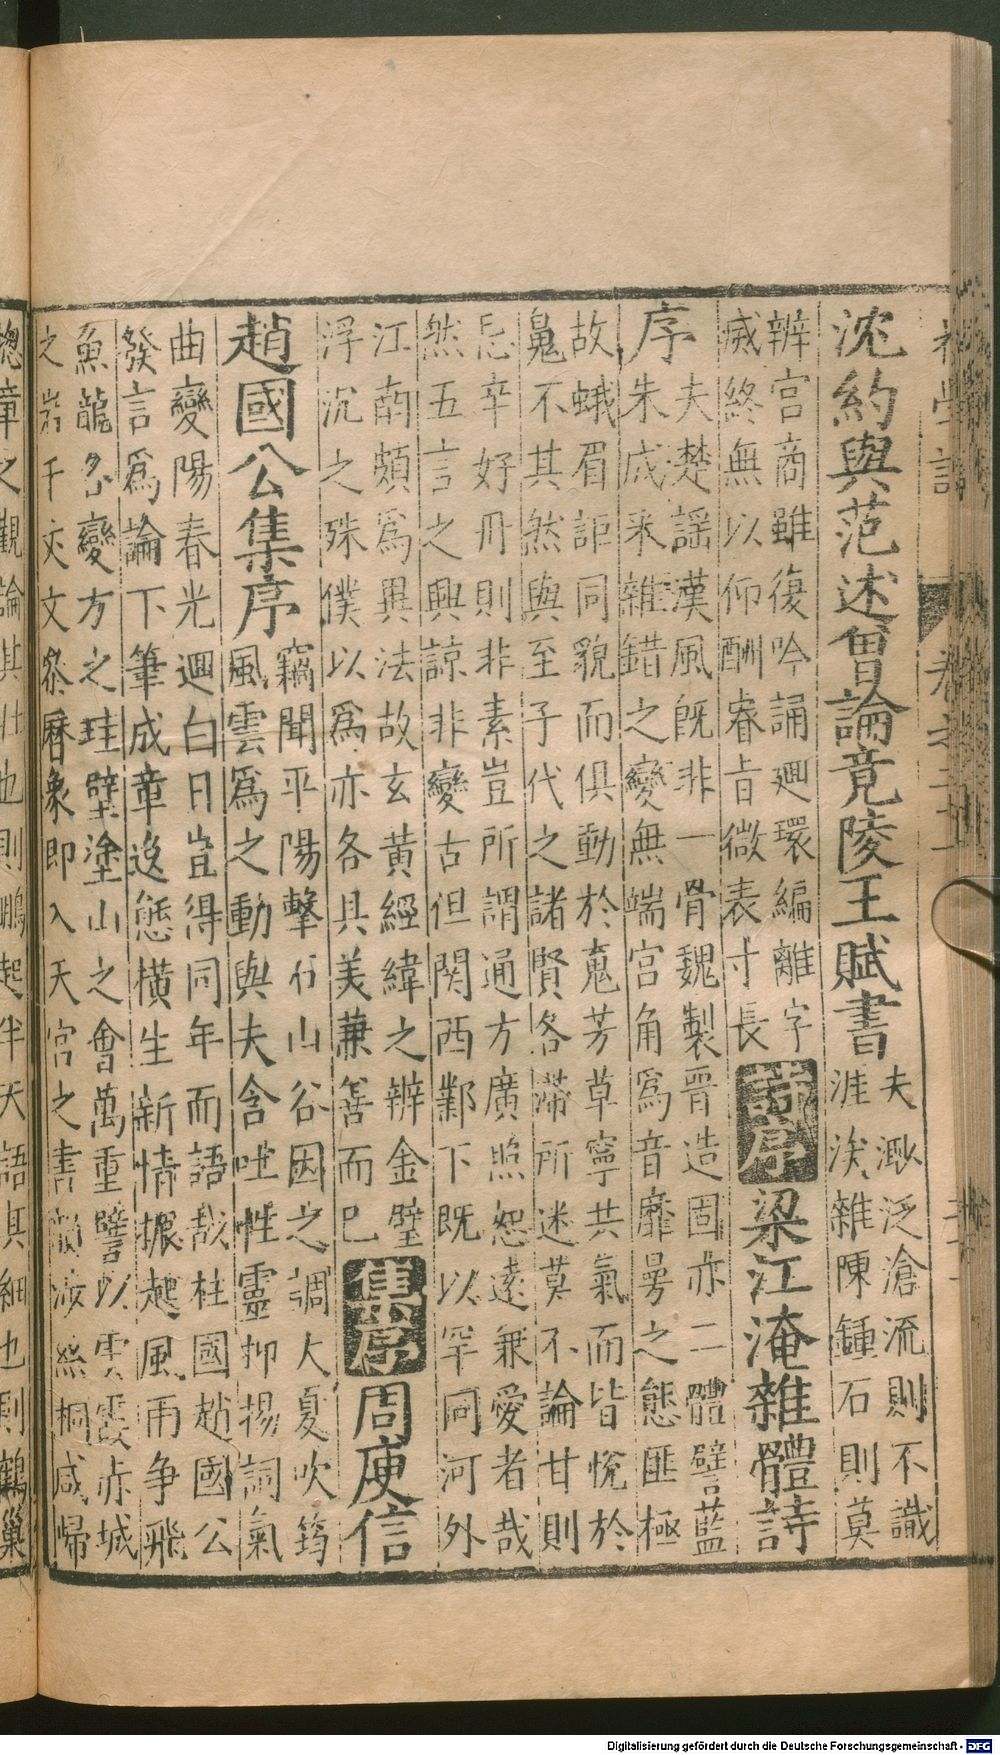 沈約與范述曾論竟陵王賦書
夫渺泛滄流則不識
涯涘雜陳鍾石則莫
辨宮商雖復吟誦廻環編離字
滅終無以仰酬睿旨微表寸長
詩序
梁江淹雜體詩
序
夫楚謡漢風旣非一骨魏製晋造固亦二體譬藍
朱成釆雜錯之變無端宮角爲音靡曼之態匪極
故蛾眉詎同貌而俱動於䰟芳草寧共氣而皆悅於
䰟不其然與至于代之諸賢各滯所迷莫不論甘則
忌辛好丹則非素豈所謂通方廣照恕遠兼愛者哉
然五言之興諒非變古但関西鄴下既以罕同河外
江南頗爲異法故玄黃經緯之辨金璧
浮沉之殊僕以爲亦各具美兼善而巳
集序
周庾信
趙國公集序
竊聞平陽擊石山谷因之調大夏吹筠
風雲爲之動與夫含吐性靈抑揚詞氣
曲變陽春光廻白日豈得同年而語哉柱國趙國公
發言爲論下筆成章逸態橫生新情振起風雨争飛
魚龍各變方之珪璧塗山之會萬重譬以雲霞赤城
之岩千丈文參曆象即入天官之書韻涉絲桐咸歸
總章之觀論其壮也則鵬起半天語其細也則鶴巢
Digitalisierung gefördert durch die Deutsche Forschungsgemeinschaft - DFG